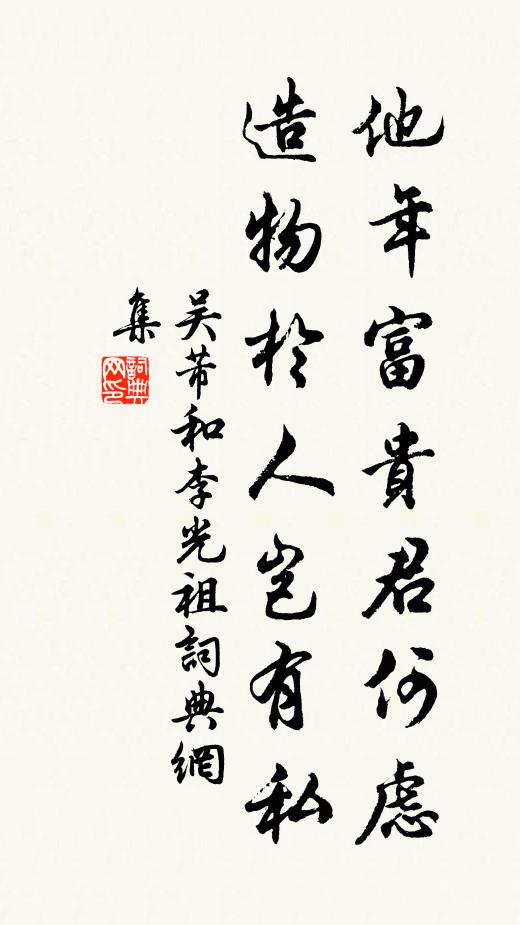 他年富貴君何慮
造物於人豈有私
吴芾和李光祖詞典網
集
詞典
网印